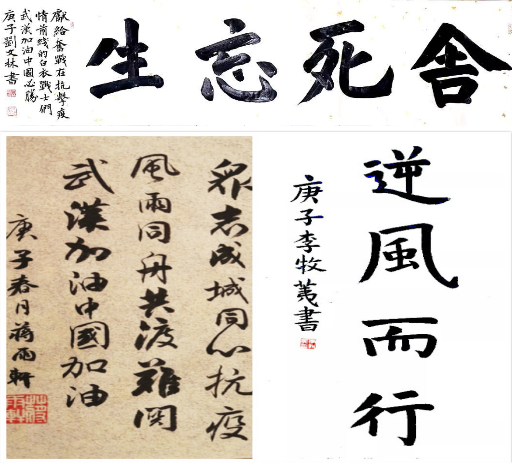 舍死忘生
獻給奮戰在抗擊疫
情前线的白衣戰士們
武漢加油中國必勝
庚子劉文林書
眾志成城同心抗疫
風雨同舟共渡難関
武漢加油中國加油
庚子春月蔣雨軒
逆風而行
庚子李牧書